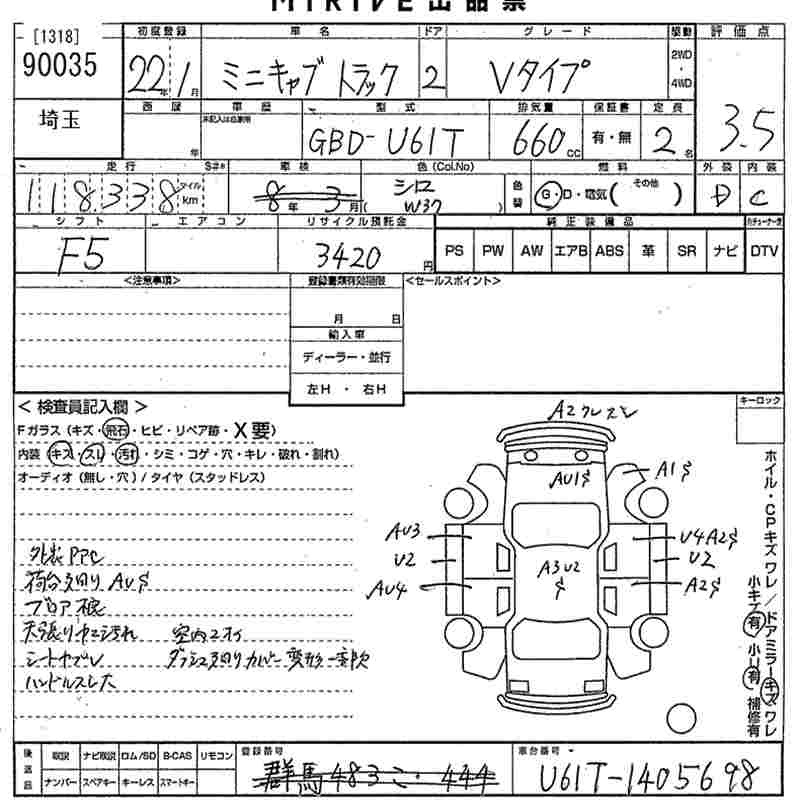 MIRIVE出品票
[1318]
90035
埼玉
初度登録 車名 ドア グレード 駆動 評価点
22年1月 ミニキャブ トラック 2 Vタイプ 2WD・4WD 3.5
車歴 型式 排気量 保証書 定員
未記入は自家用
年 GBD-U61T 660cc 有・無 2名
走行 車検 色(Col.No) 燃料 外装 内装
118,338 マイル km 8年3月 シロ W37 色替 G・D・電気(その他) D C
シフト エアコン リサイクル預託金 純正装備品
F5 3420円 PS PW AW エアB ABS 革 SR ナビ DTV
<注意事項> 登録書類有効期限 <セールスポイント>
月 日
輸入車
ディーラー・並行
左H・右H
<検査員記入欄>
キーロック
Fガラス(キズ・飛石・ヒビ・リペア跡・X要)
内装(キズ・スレ・汚れ・シミ・コゲ・穴・キレ・破れ・割れ)
オーディオ(無し・穴)/タイヤ(スタッドレス)
外装PPC
荷台廻りAUS
天張り 汚れ 室内
シートヤブレ ダッシュ廻りカバー変形 一部欠
ハンドルスレ大
A2
AU1S A1S
AU3 U4A2S
U2 A3U2S U2
AU4 A2S
ホイル・CPキズワレ/ドアミラーキズワレ
小キズ有 小U有 補修有
後送品 取説 ナビ取説 ロム/SD B-CAS リモコン 登録番号 車台番号
ナンバー スペアキー キーレス スマートキー 群馬 483こ・444 U61T-1405698